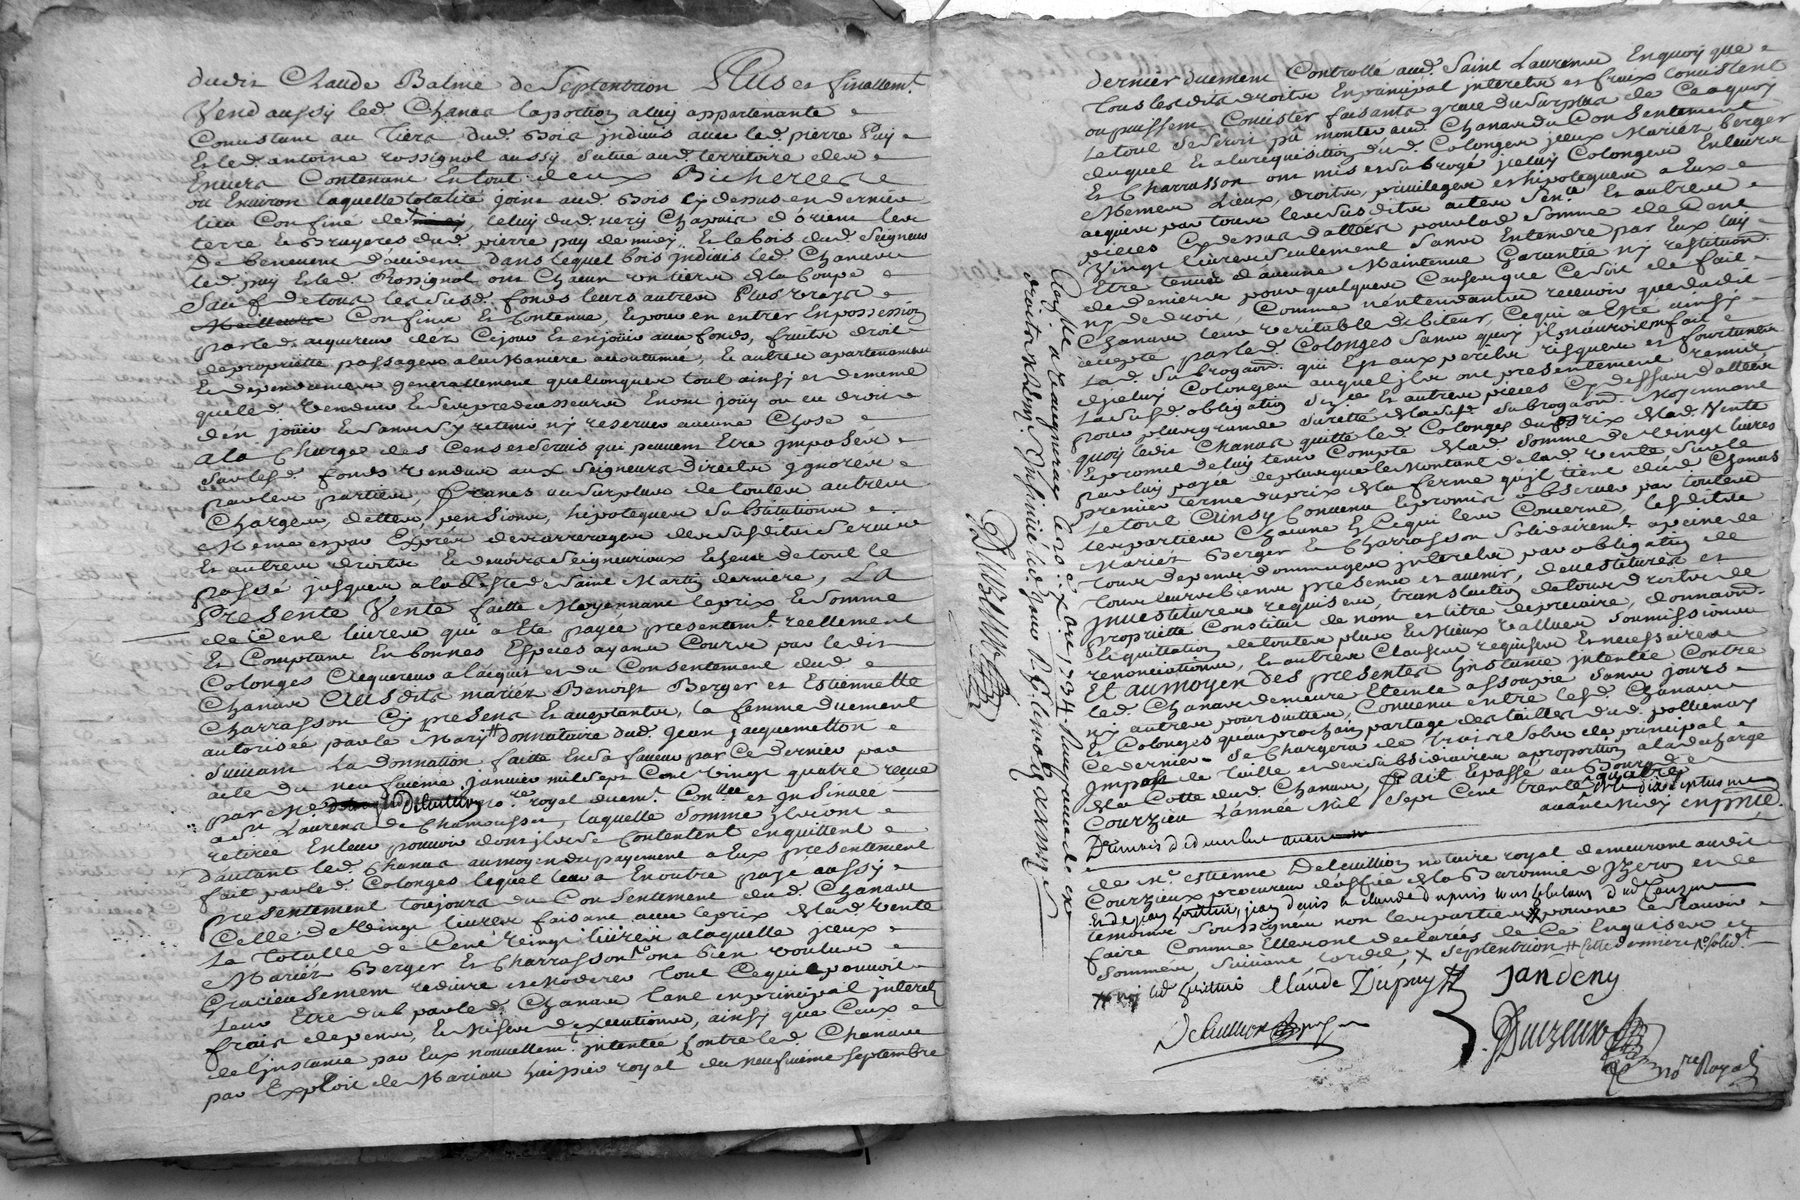 dudit Claude Balme de Septentrion Plus et finallemt.
Vend aussy led. Chanas la portion a luy appartenante
Consistant au tiers dud. bois indivis avec led. pierre Puy
Et led. antoine rossignol aussy situé aud. territoire des
Envers Contenant En tout deux Bicherées
ou Environ laquelle totalité joint aud. bois Cy dessus en dernier
lieu Confiné de celuy dud. nery Chavais d'orient les
terre & bruyeres dud. pierre puy de midy Et le bois dud. Seigneur
De benevent d'occident dans lequel bois indivis led. Chanas
led. puy & led. Rossignol ont Chacun un tiers de la Coupe
Sauf de tous les susd. fonds leurs autres Plus vrays
Meilleurs Confins & Contenue, & pour en entrer En possession
par led. acquereur dez Ce jour Et en jouir aux fonds, fruits droit
de proprieté passages a la Maniere accoutumée, & autres apartenances
Et dependances generallement quelconques tout ainsy et de meme
que led. Vendeur & ses predecesseurs En ont jouy ou eu droit
d'en jouir & sans s'y retenir ny reserver aucune Chose
a la Charge des Cens et Servis qui peuvent Etre imposés
Sur lesd. fonds Vendus aux Seigneurs directs ignorés
par les parties, francs au surplus de toutes autres
Charges, dettes, pensions, hipoteques substitutions
Meme et par Exprès des arrerages des susdits Servis
Et autres droits & devoirs Seigneuriaux Echeus de tout le
passé jusques a la feste de Saint Martin derniere, LA
Presente Vente faitte Moyennant le prix & somme
de Cent livres qui a Eté payée presentemt. reellement
Et Comptant En bonnes Especes ayant Cours par ledit
Colonges acquereur a l'acquit et du Consentement dud.
Chanas Ausdits mariez Benoist Berger et Estiennette
Charrasson Cy presens Et acceptants, la femme duement
autorisée par le Mary # donnataire dud. Jean jacquemetton
Suivant la donnation faitte En sa faveur par Ce dernier par
acte du neufvieme janvier mil sept Cent Vingt quatre reçue
par Me. Delaullion nore. royal duemt. Conllée et Insinuée
a St. Laurens de Chamousset, laquelle somme ils ont
retirée En leur pouvoir dont ils se Contentent en quittent
d'autant led. Chanas au moyen du payement a Eux presentement
fait par led. Colonges lequel leur a En outre payé aussy
presentement toujours du Consentement dud. Chanas
Celle de Vingt livres faisant avec le prix de lad. Vente
la totalle de Cent Vingt livres a laquelle yceux
Mariez Berger Et Charrasson ont bien voulu
Gracieusement reduire et Moderer tout Ce qui pouvoit
leur Etre dub par led. Chanas tant en principal interets
frais depens, & Mises d'Executions, ainsy que Ceux
de l'jnstance par Eux nouvellemt. intentée Contre led. Chanas
par Exploit de Marian huissier royal du neufvieme septembre
dernier duement Controllé aud. Saint Laurens En quoy que
tous lesdits droits En principal interets et frais Consistent
ou puissent Consister faisants grace du surplus de Ce a quoy
le tout se seroit pû monter aud. Chanas du Consentement
duquel Et a la requisition dud. Colonges jceux Mariez berger
Et Charrasson ont mis et subrogé jceluy Colonges En leurs
Memes Lieux, droits, privileges et hipoteques a Eux
acquis par tous les susdits actes Et autres
pieces Cy dessus d'attées pour lad. Somme de Cent
Vingt livres seulement sans Entendre par Eux luy
Etre tenus d'aucune Maintenue Garantie ny restitution
de deniers pour quelques Causes que Ce soit de fait
ny de droit, Comme n'entendants recevoir que dudit
Chanas leur veritable debiteur, Ce qui a Eté ainsy
accepté par led. Colonges sans quoy il n'auroient fait
lad. Subrogaon. qui Est aux perils risques et fortunes
d'jceluy Colonges auquel ils ont presentement remis
la susd. obligation Et autres pieces Cy dessus d'attées
pour plus grande sureté de la susd. subrogaon. Moyennant
quoy ledit Chanas quitte led. Colonges du prix de lad. Vente
Et promet de luy tenir Compte de lad. somme de Vingt livres
par luy payée de plus que le Montant de lad. Vente sur le
premier terme du prix de la ferme qu'il tient dud. Chanas
Le tout Ainsy Convenu & promis observer par toutes
les parties Chacune En Ce qui les Concerne, lesdits
Mariez Berger & Charrasson Solidairement a peine de
tous depens dommages interets par obligation de
tous leurs biens presens et avenir, devestitures et
investitures requises, translation de tous droits de
proprieté Constitut de nom et titre de precaire, donnaon.
liquidation de toutes plus & Mieux Vallues soumissions
renonciations, & autres Clauses requises Et necessaires
Et aumoyen des presentes l'jnstance intentée Contre
led. Chanas demeure Eteinte assoupie sans jours
ny autres poursuittes, Convenu entre lesd. Chanas
Et Colonges qu'au prochain partage des tailles dud. pollienay
Ce dernier Se Chargera de trois sols de principal
Imposst. de taille et des subsidiaires a proportion a la decharge
de la Cotte dud. Chanas, Fait & passé au Bourg de
Courzieu L'année Mil Sept Cent trente quatre
avant Midy
Du mois d decembre
de Me. estienne Delaullion notaire royal demeurant audit
Courzieux procureur d'office de la Baronnie d'yzeron et de
temoins Soussignés non les parties pour ne le sçavoir
faire Comme Elles ont declarées de Ce Enquises et
Sommées, suivant l'ordce., x septentrion # cette derniere
Claude Dupuy # jandeny
Delaullion
Duizeux
nore. Royal